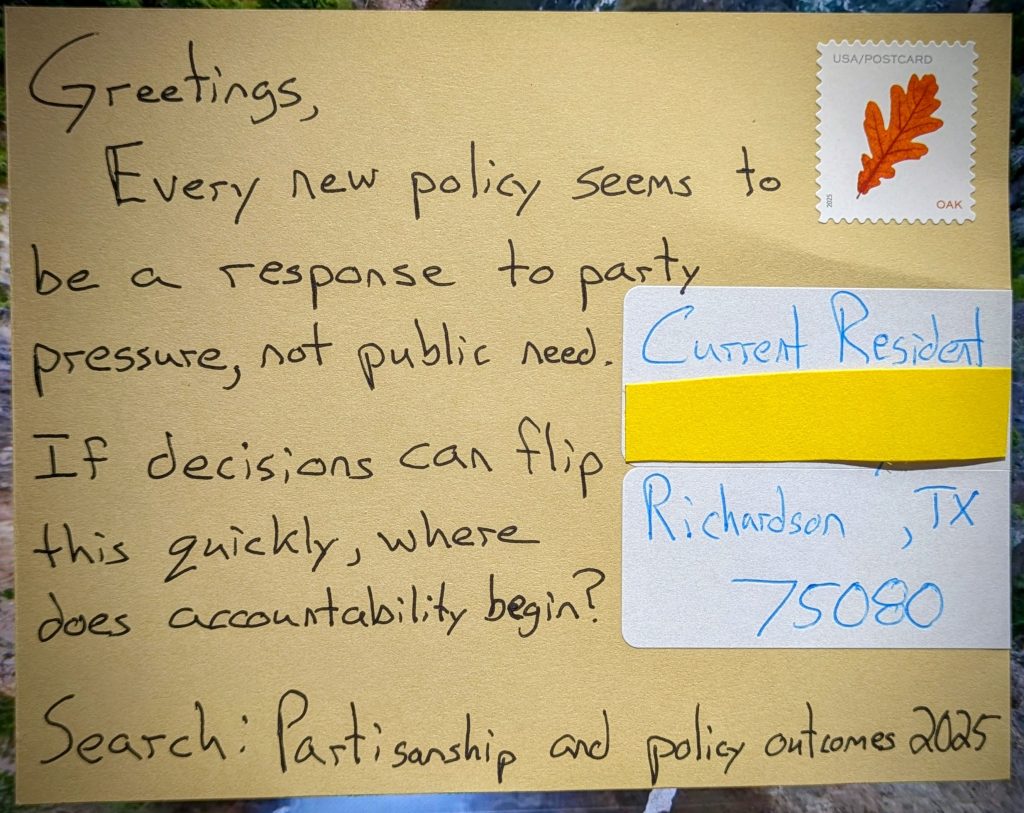 Greetings,
Every new policy seems to
be a response to party
pressure, not public need.
If decisions can flip
this quickly, where
does accountability begin?
Search: Partisanship and policy outcomes 2025
USA/POSTCARD
2025
OAK
Current Resident
Richardson, TX
75080